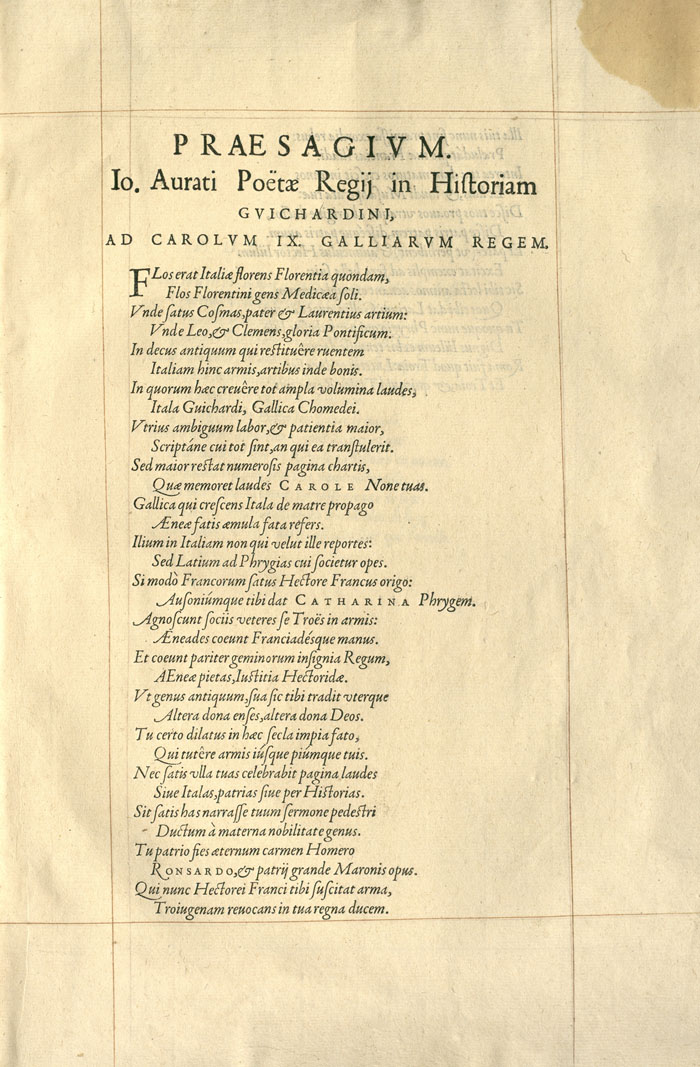 PRAESAGIVM.
Io. Aurati Poëtæ Regij in Hiſtoriam
GVICHARDINI,
AD CAROLVM IX. GALLIARVM REGEM.
FLos erat Italiæ florens Florentia quondam,
Flos Florentini gens Medicæa ſoli.
Vnde ſatus Coſmas, pater & Laurentius artium:
Vnde Leo, & Clemens, gloria Pontificum.
In decus antiquum qui reſtituêre ruentem
Italiam hinc armis, artibus inde bonis.
In quorum hæc creuêre tot ampla volumina laudes,
Itala Guichardi, Gallica Chomedei.
Vtrius ambiguum labor, & patientia maior,
Scriptáne cui tot ſint, an qui ea tranſtulerit.
Sed maior reſtat numeroſis pagina chartis,
Quæ memoret laudes CAROLE None tuas.
Gallica qui creſcens Itala de matre propago
Æneæ fatis æmula fata refers.
Ilium in Italiam non qui velut ille reportes:
Sed Latium ad Phrygias cui ſocietur opes.
Si modò Francorum ſatus Hectore Francus origo:
Auſoniúmque tibi dat CATHARINA Phrygem.
Agnoſcunt ſociis veteres ſe Troës in armis:
Æneades coeunt Franciadéſque manus.
Et coeunt pariter geminorum inſignia Regum,
AEneæ pietas, Iuſtitia Hectoridæ.
Vt genus antiquum, ſua ſic tibi tradit vterque
Altera dona enſes, altera dona Deos.
Tu certo dilatus in hæc ſecla impia fato,
Qui tutêre armis iúſque piúmque tuis.
Nec ſatis vlla tuas celebrabit pagina laudes
Siue Italas, patrias ſiue per Hiſtorias.
Sit ſatis has narraſſe tuum ſermone pedeſtri
Ductum à materna nobilitate genus.
Tu patrio fies æternum carmen Homero
RONSARDO, & patrij grande Maronis opus.
Qui nunc Hectorei Franci tibi ſuſcitat arma,
Troiugenam reuocans in tua regna ducem.